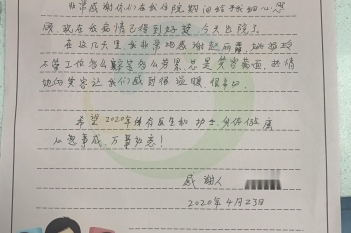 非常感谢你们在我住院期间给予我细心照
顾，现在我病情已得到好转，今天出院了。
在这几天里我非常地感谢赵丽霞
不管工作怎么 怎么劳累，总是笑容满面，热情
地 笑容让我们感到很温暖，很 的
希望2020年 医生和护士身体健康
心想事成，万事如意！
感谢人
2020年4月23日